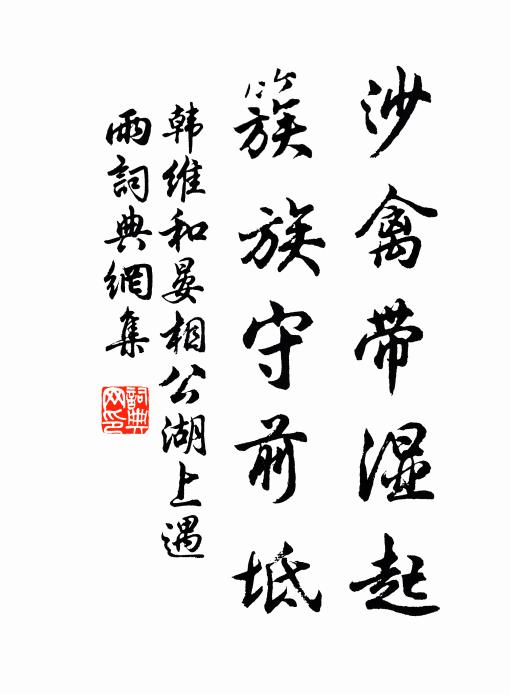 沙禽带湿起
簇族守前坻
韩维和晏相公湖上遇
雨詞典網集
詞典
网印